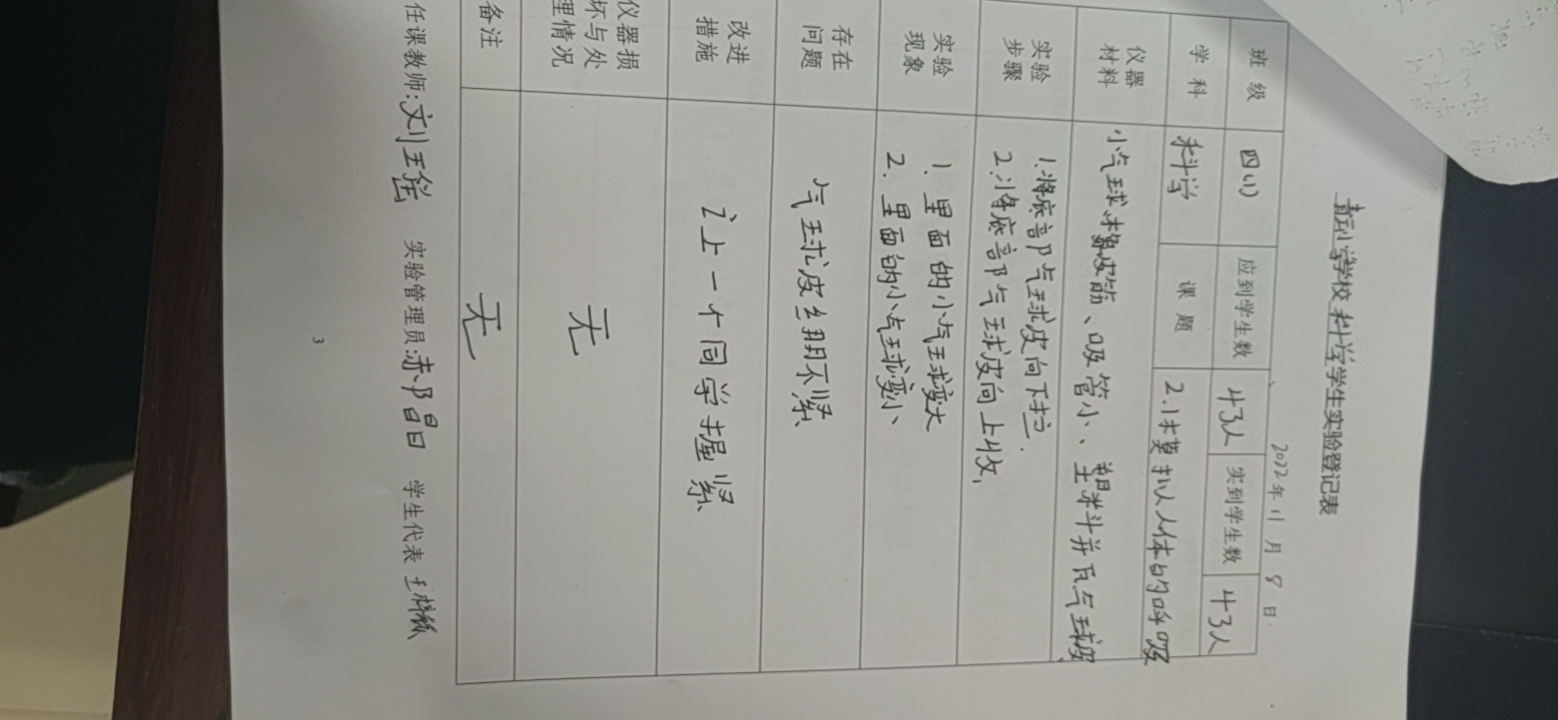 学校科学学生实验登记表
2022年11月8日
班级 四(1) 应到学生数 43人 实到学生数 43人
学科 科学 课题 2.1模拟人体的呼吸
仪器材料 小气球、橡皮筋、吸管小、塑料并瓦气球皮
实验步骤 1.将底部气球皮向下拉.
2.将底部气球皮向上收,
实验现象 1.里面的小气球变大
2.里面的小气球变小、
存在问题 气球皮绷不紧
改进措施 让一个同学握紧
仪器损坏与处理情况 无
备注 无
任课教师: 实验管理员: 学生代表 王
3